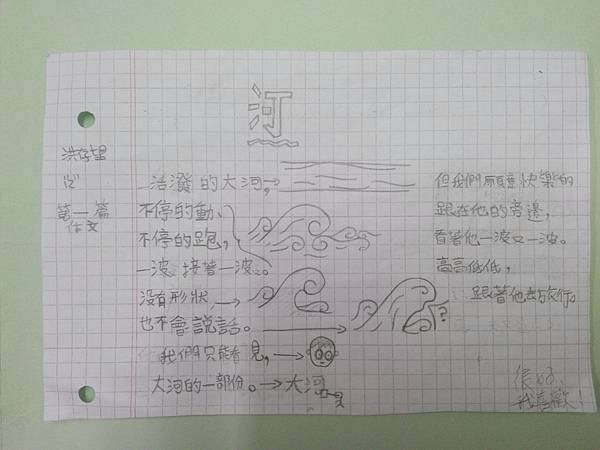 河
洪存望
12
第一篇
作文
活潑的大河，
不停的動、
不停的跑，
一波接著一波。
沒有形狀
也不會說話。
我們只能看見，
大河的一部份。→大河
但我們願意快樂的
跟在他的旁邊，
看著他一波又一波。
高高低低，
跟著他去旅行。
很好
我喜歡！